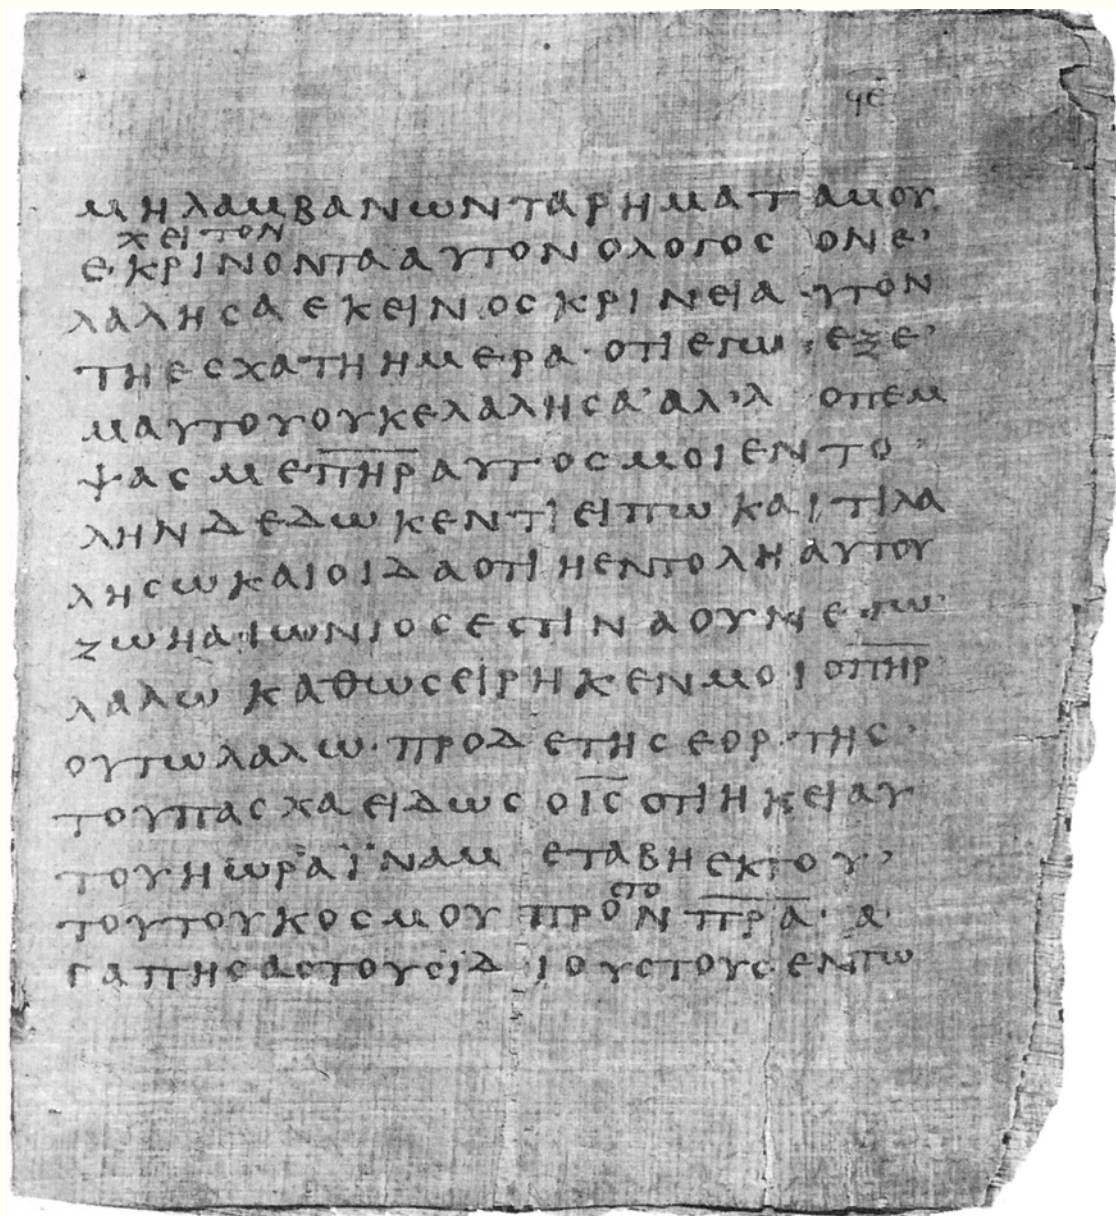 ϥε
μηλαμβανωνταρηματαμου
χειτον
ε·κρινοντααυτονολογος ονε’
λαλησαεκεινοςκρινειαυτον
τηεσχατηημερα·οτιεγω·εξε’
μαυτουουκελαλησα’αλ’λ οπεμ
ψαςμεπ̅η̅ρ̅αυτοςμοιεντο’
ληνδεδωκεντιειπωκαιτιλα
λησωκαιοιδαοτιηεντοληαυτου
ζωηαιωνιοςεστιναουνεγω·
λαλωκαθωςειρηκενμοιοπ̅η̅ρ̅
ουτωλαλω·προδετηςεορ·της·
τουπασχαειδωςοι̅ς̅οτιηκειαυ
τουηωραϊναμεταβηεκτου’
στο
τουτουκοσμουπρονπ̅ρ̅α̅·α·
γαπησαςτουςϊδιουςτουςεντω